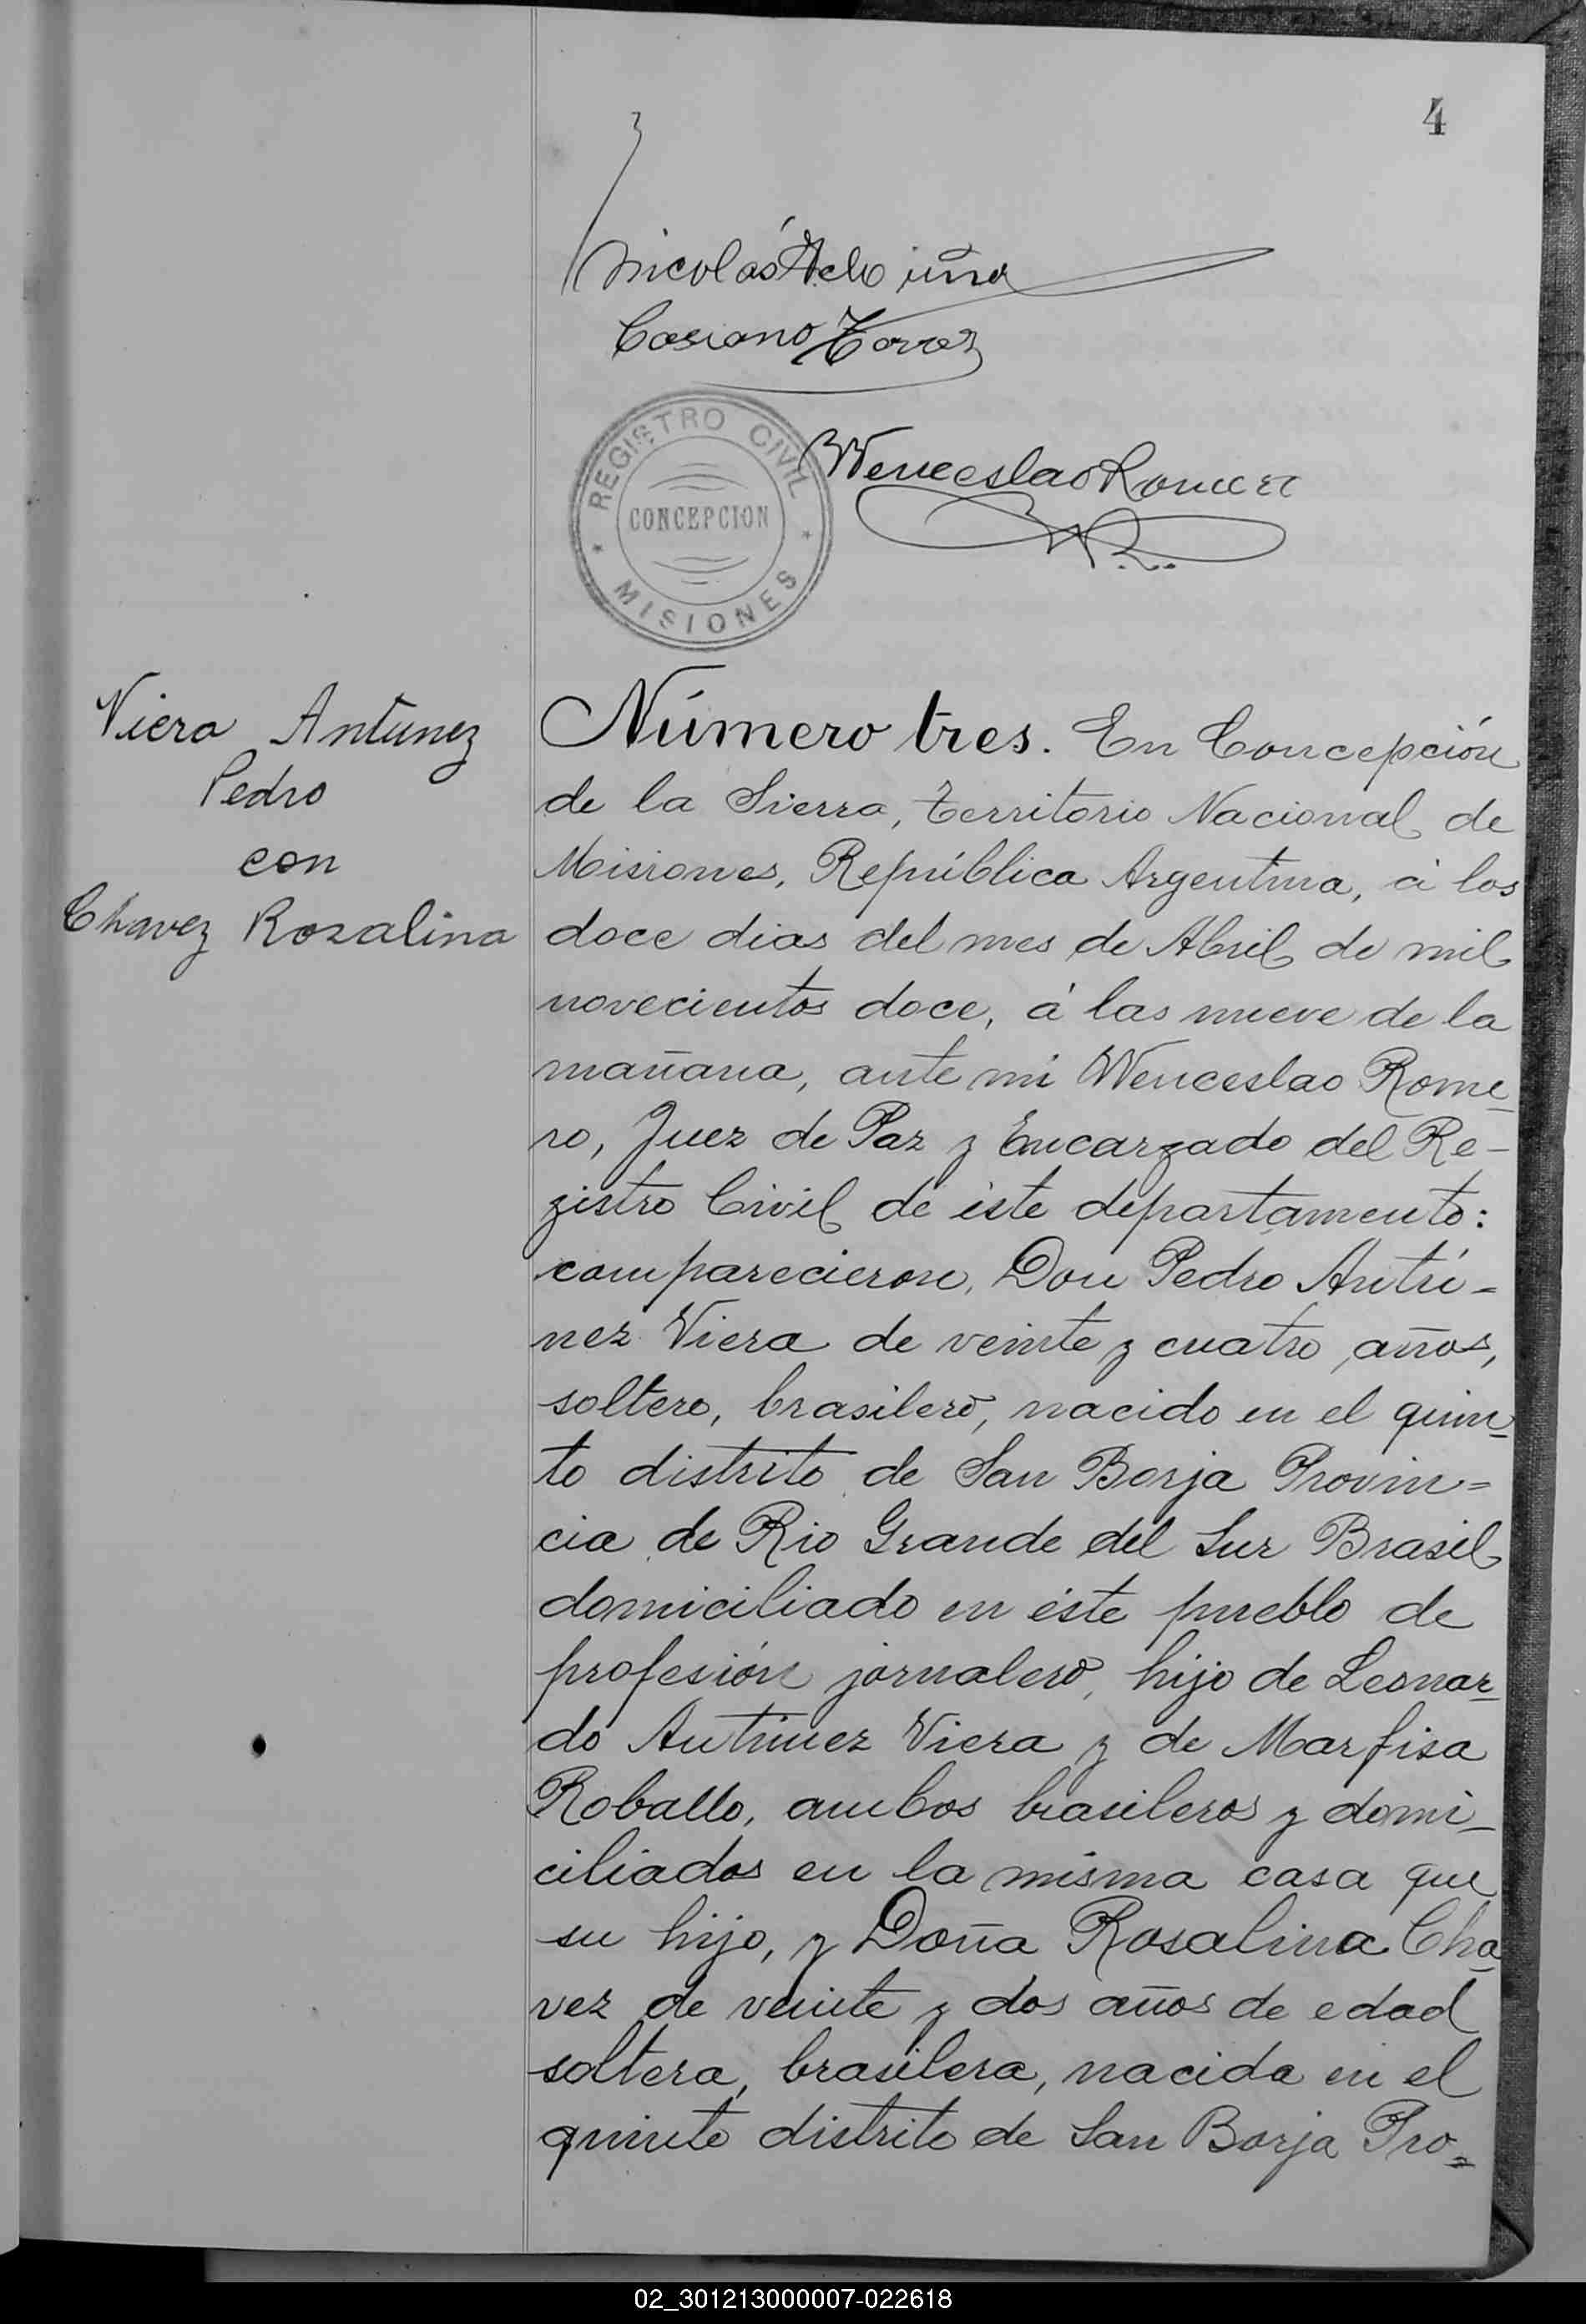 4
Nicolás
Casiano Torres
REGISTRO CIVIL
CONCEPCION
MISIONES
Wenceslao Romero
W.R.
Viera Antunez
Pedro
con
Chavez Rozalina
Número tres. En Concepción
de la Sierra, territorio Nacional de
Misiones, República Argentina, á los
doce dias del mes de Abril de mil
novecientos doce, á las nueve de la
mañana, ante mi Wenceslao Rome-
ro, Juez de Paz y Encargado del Re-
gistro Civil de éste departamento:
comparecieron, Don Pedro Antú-
nez Viera de veinte y cuatro años,
soltero, brasilero, nacido en el quin-
to distrito de San Borja Provin-
cia de Rio Grande del Sur Brasil
domiciliado en éste pueblo de
profesión jornalero, hijo de Leonar-
do Antúnez Viera y de Marfisa
Roballo, ambos brasileros y domi-
ciliados en la misma casa que
su hijo, y Doña Rosalina Cha-
vez de veinte y dos años de edad
soltera, brasilera, nacida en el
quinto distrito de San Borja Pro-
02_301213000007-022618